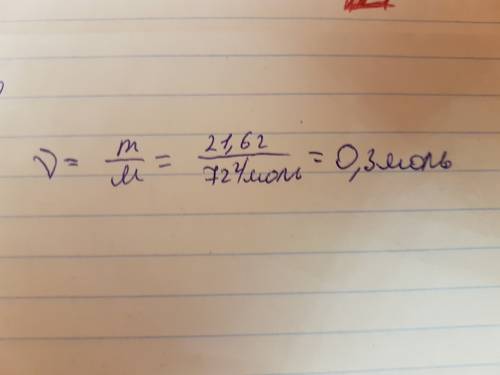 ν = m/M = 21,6г/72г/моль = 0,3моль